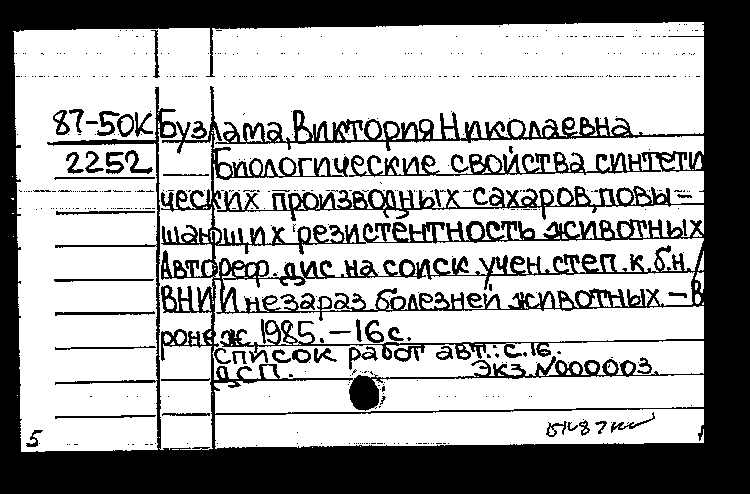 87-50К Бузлама, Виктория Николаевна.
2252 Биологические свойства синтети
ческих производных сахаров, повы-
шающих резистентность животных
Автореф. дис. на соиск. учен. степ. к.б.н./
ВНИИ незараз. болезней животных. - В
ронеж, 1985. - 16 с.
Список работ авт.: с. 16.
ДСП. Экз. N000003.
5